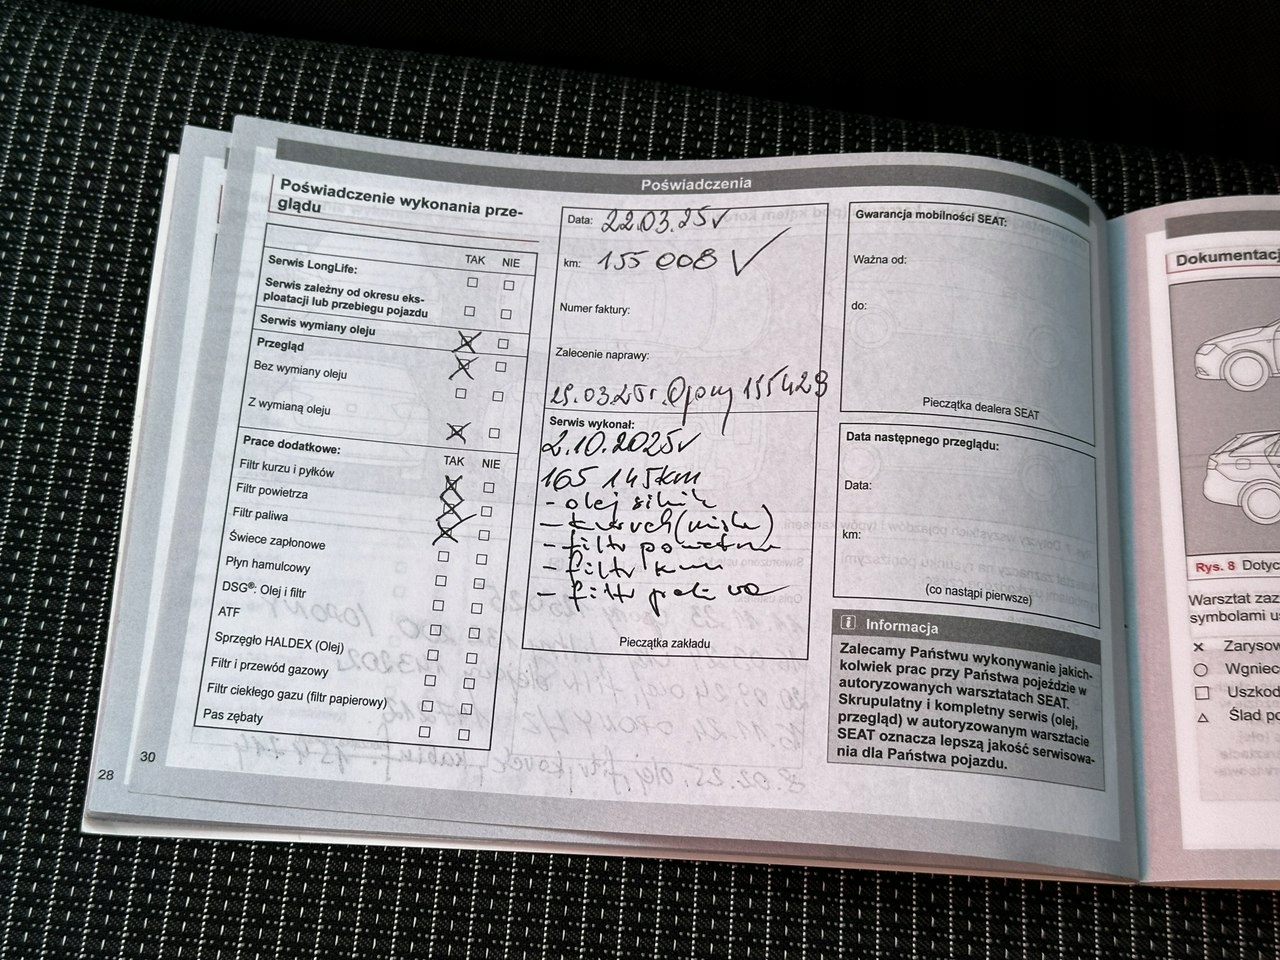 Poświadczenia
Poświadczenie wykonania prze-
glądu
TAK NIE
Serwis LongLife:
Serwis zależny od okresu eks-
ploatacji lub przebiegu pojazdu
Serwis wymiany oleju
Przegląd
Bez wymiany oleju
Z wymianą oleju
Prace dodatkowe: TAK NIE
Filtr kurzu i pyłków
Filtr powietrza
Filtr paliwa
Świece zapłonowe
Płyn hamulcowy
DSG®: Olej i filtr
ATF
Sprzęgło HALDEX (Olej)
Filtr i przewód gazowy
Filtr ciekłego gazu (filtr papierowy)
Pas zębaty
30
28
Data: 22.03.25r
km: 155 008 V
Numer faktury:
Zalecenie naprawy:
29.03.25r. Opony 155428
Serwis wykonał:
2.10.2025r
165 145km
- olej silnik
- (miska)
- filtr powietrza
- filtr
- filtr paliwa
Pieczątka zakładu
Gwarancja mobilności SEAT:
Ważna od:
do:
Pieczątka dealera SEAT
Data następnego przeglądu:
Data:
km:
(co nastąpi pierwsze)
i Informacja
Zalecamy Państwu wykonywanie jakich-
kolwiek prac przy Państwa pojeździe w
autoryzowanych warsztatach SEAT.
Skrupulatny i kompletny serwis (olej,
przegląd) w autoryzowanym warsztacie
SEAT oznacza lepszą jakość serwisowa-
nia dla Państwa pojazdu.
Dokumentacj
Rys. 8 Dotyc
Warsztat zaz
symbolami u
x Zarysow
○ Wgniec
□ Uszkod
△ Ślad po